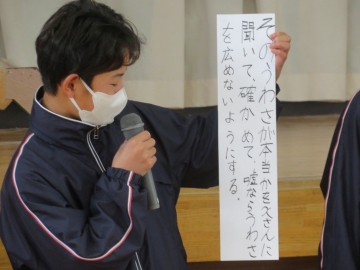 そのうわさが本当かをSさんに
聞いて、確かめて、嘘ならうわさ
を広めないようにする。